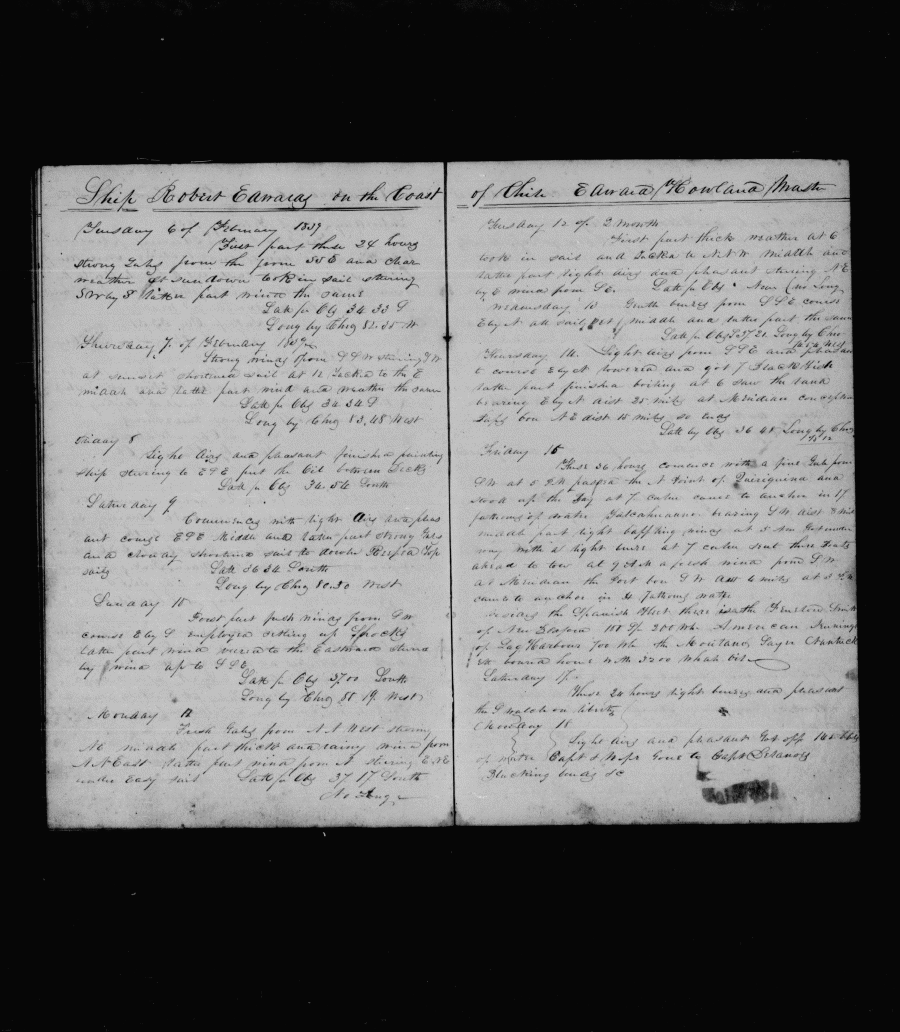 Ship Robert Edwards on the Coast
Tuesday 6 of February 1839
First part these 24 hours
strong Gales from the from SSE and clear
weather at sundown took in sail steering
SW by S latter part wind the same
Latt pr Obs 34 33 S
Long by Chro 82.35 W
Thursday 7 of February 1839
Strong winds from SSW steering
at sunset shortened sail at 12 Tacked to the E
middle and latter part wind and weather the same
Latt pr Obs 34 34 S
Long by Chro 83,48 West
Friday 8
Light Airs and pleasant finished painting
ship steering to ESE put the Oil between Decks
Latt pr Obs 34.54 South
Saturday 9
Commences with light Airs and pleas
ant course ESE Middle and latter part strong Gales
and cloudy shortened sail to double Reefed Top
sails Latt 36 34 South
Long by Chro 80.30 West
Sunday 10
First part fresh winds from SW
course E by S employed setting up Shooks
latter part wind veered to the Eastward steered
by wind up to SSE
Latt pr Obs 37.00 South
Long by Chro 88 19 West
Monday 12
Fresh Gales from NN West steering
NE middle part thick and rainy wind from
NN East latter part wind from N steering ENE
under easy sail Latt pr Obs 37 17 South
No Long
of Chile Edward Howland Master
Tuesday 12 of 2 month
First part thick weather at 6
took in sail and Tacked to NNW middle and
latter part light airs and pleasant steering NE
by E wind from SE. Latt pr Obs None no Long
Wednesday 13 Gentle breezes from SSE course
E by N all sail set middle and latter part the same
Latt pr Obs 37 21 Long by Chro
West
Thursday 14 Light airs from SSE and pleasant
to course E by N lowered and got 7 Black Fish
latter part finished boiling at 6 saw the land
bearing E by N dist 35 miles at Meridian conception
Paps bore NE dist 15 miles so ends
Latt by Obs 36 48 Long by Chro
Friday 15
These 36 hours commence with a fine Gale from
SW at 5 PM passed the N Point of Quiriquina and
stood up the Bay at 7 calm came to anchor in 17
fathoms of water Talcahuano bearing SW dist miles
middle part light baffling winds at 5 AM Got under
way with a light breeze at 7 calm sent three Boats
ahead to tow at 9 AM a fresh wind from SW
at Meridian the Port bore SW dist 4 miles at 3 PM
came to anchor in 4 fathoms water
besides the Spanish Fleet there is the
of New Bedford 180 Sp 200 Wh American
of Sag Harbour 700 Wh the Montano Nantucket
bound home with 3200 Whale Oil
Saturday 17
These 24 hours light breezes and pleasant
the watch on liberty
Monday 18
Light airs and pleasant Got off 160 bbls
of water Capt & Wife Gone to Capt Delanos
Blacking bends &c